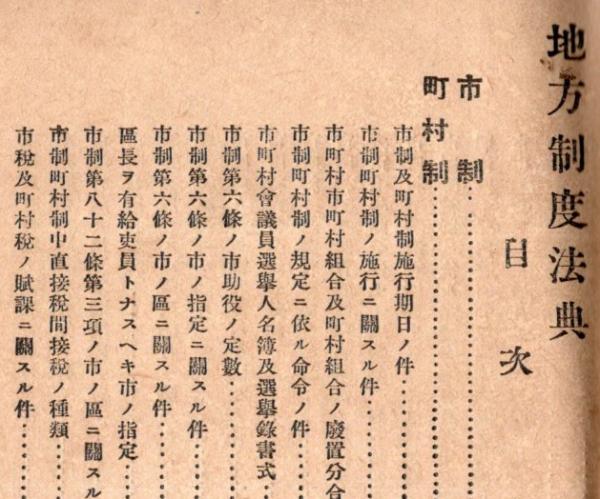 地方制度法典
目次
市制
町村制
市制及町村制施行期日ノ件
市制町村制ノ施行ニ關スル件
市町村市町村組合及町村組合ノ廢置分合
市制町村制ノ規定ニ依ル命令ノ件
市町村會議員選擧人名簿及選擧錄書式
市制第六條ノ市助役ノ定數
市制第六條ノ市ノ指定ニ關スル件
市制第六條ノ市ノ區ニ關スル件
區長ヲ有給吏員トナスヘキ市ノ指定
市制第八十二條第三項ノ市ノ區ニ關スル
市制町村制中直接稅間接稅ノ種類
市稅及町村稅ノ賦課ニ關スル件